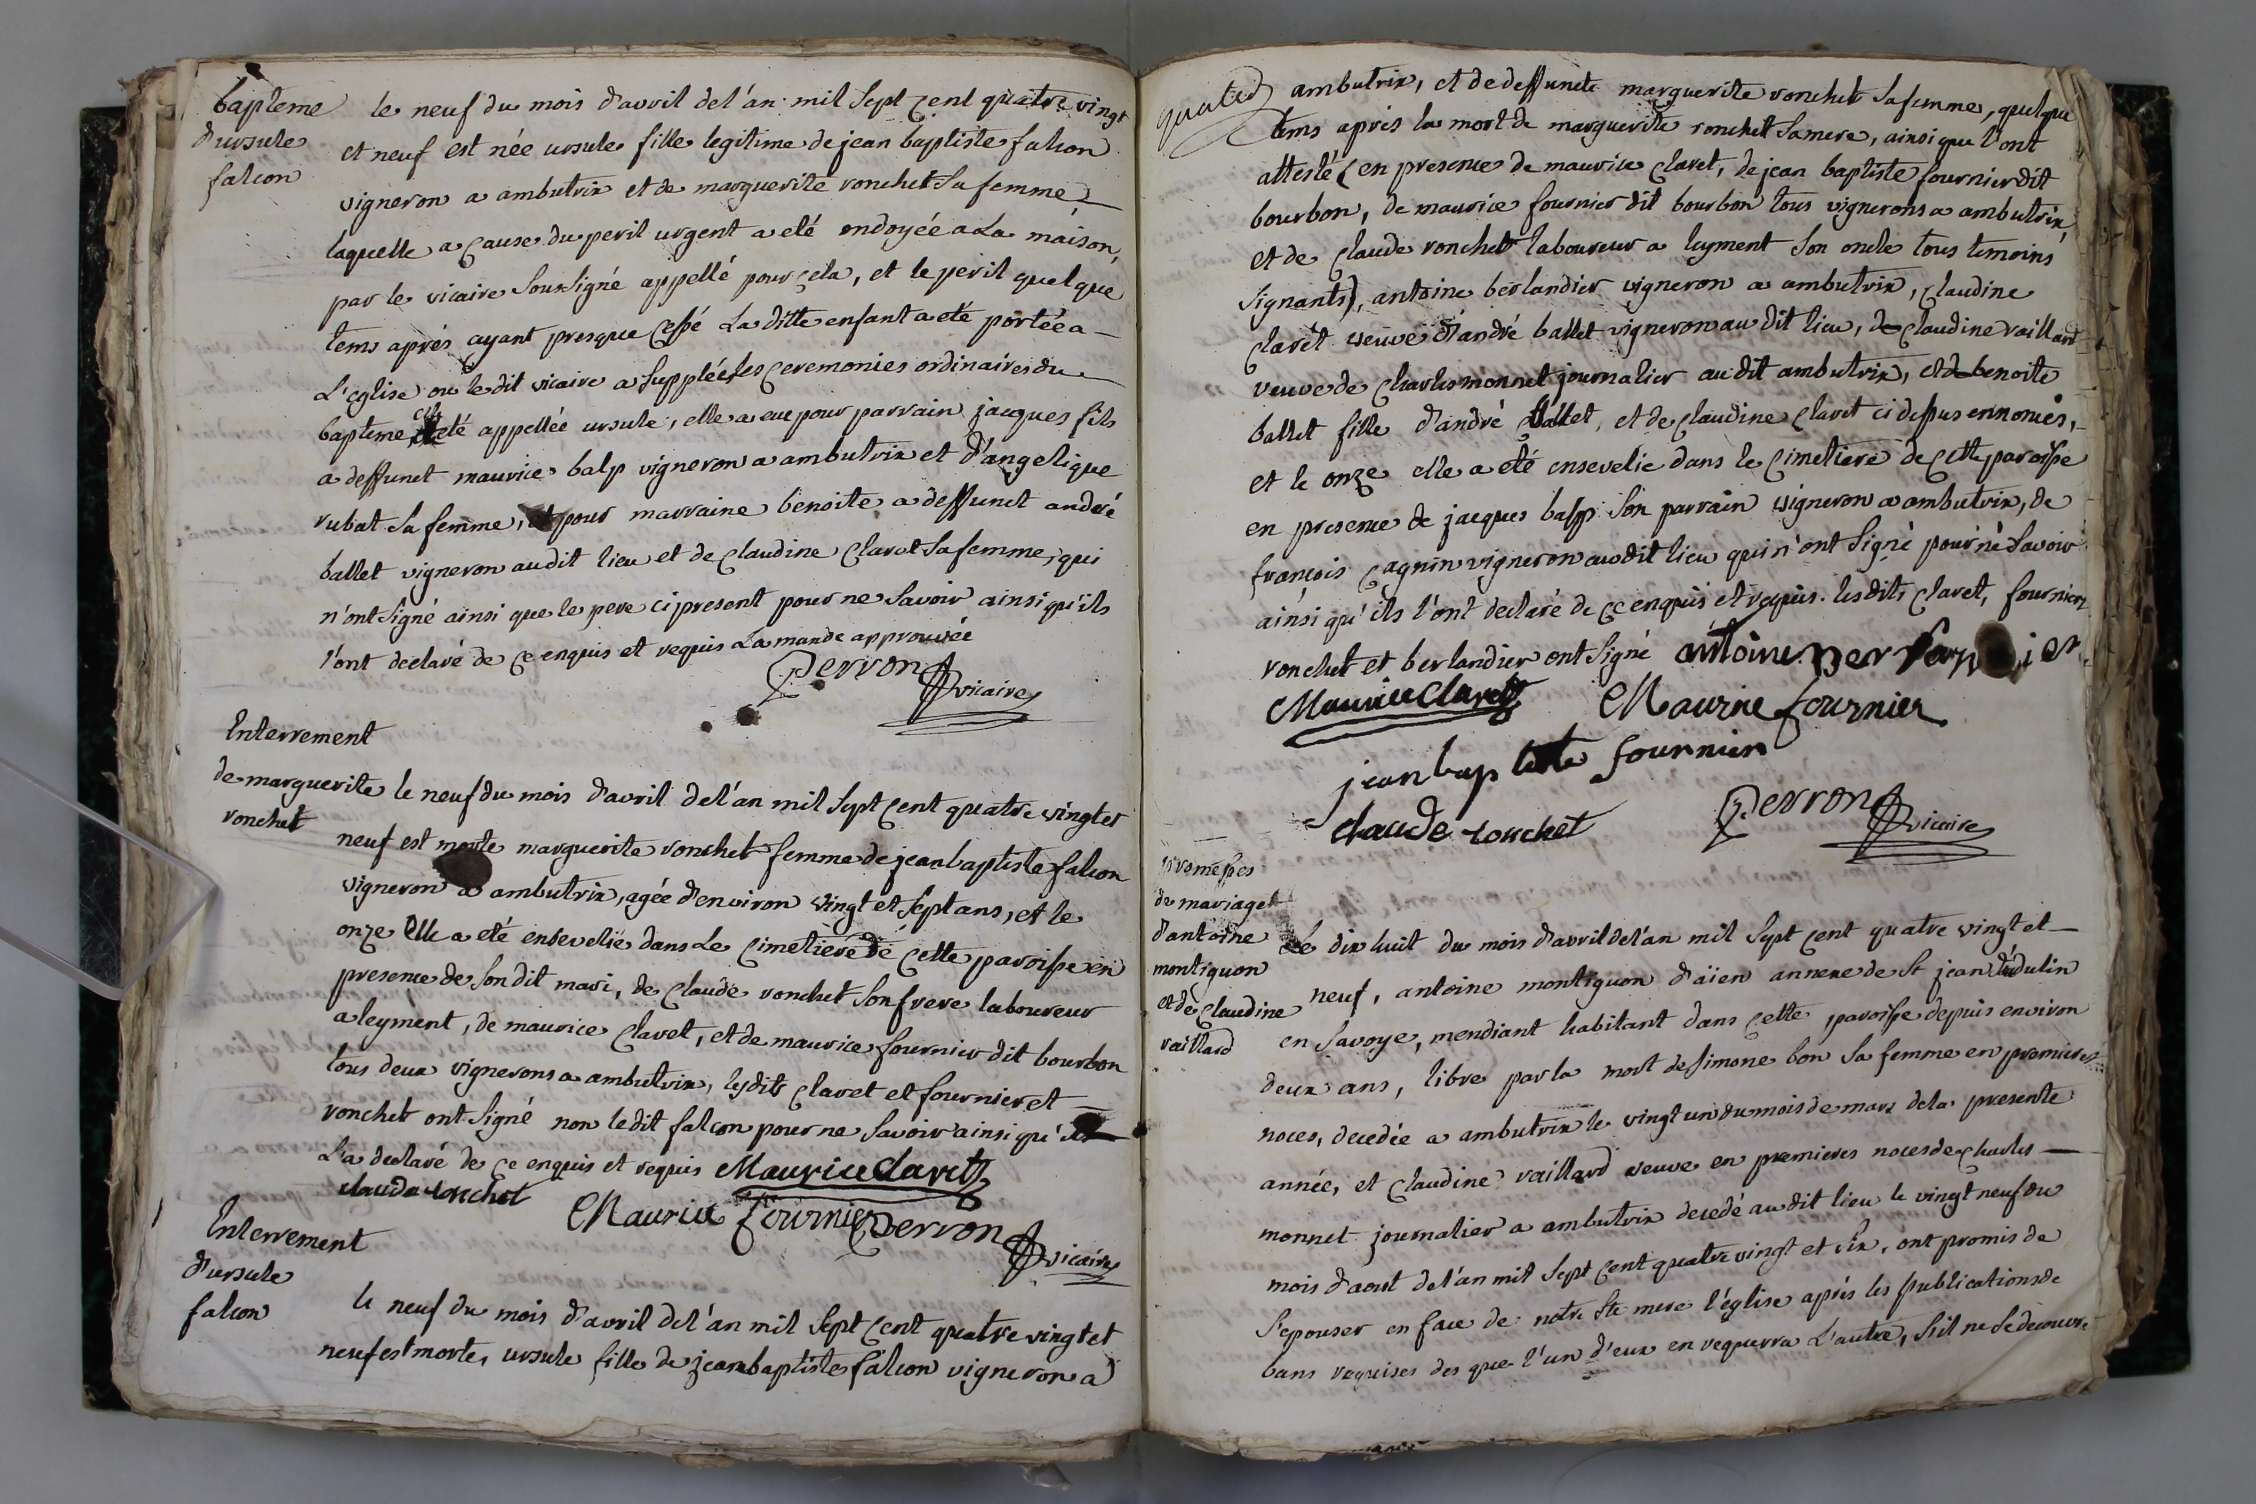 bapteme
d'ursule
falcon
le neuf du mois d'avril de l'an mil sept cent quatre vingt
et neuf est née ursule fille legitime de jean baptiste falcon
vigneron a ambutrix et de marguerite ronchet sa femme
laquelle a cause du peril urgent a eté ondoyée a la maison,
par le vicaire soussigné appellé pour cela, et le peril quelque
tems aprés ayant presque cessé la ditte enfant a eté portée a
l'eglise ou le dit vicaire a suppléé les ceremonies ordinaires du
bapteme, eté appellée ursule, elle a eue pour parrain jacques fils
a deffunct maurice balp vigneron a ambutrix et d'angelique
rubat sa femme, et pour marraine benoite a deffunct andeé
ballet vigneron audit lieu et de claudine claret sa femme, qui
n'ont signé ainsi que le pere ci present pour ne savoir ainsi qu'ils
l'ont declaré de ce enquis et requis la mande approuvée
Perron vicaire
Enterrement
de marguerite
ronchet
le neuf du mois d'avril de l'an mil sept cent quatre vingt et
neuf est morte marguerite ronchet femme de jean baptiste falcon
vigneron a ambutrix, agée d'environ vingt et sept ans, et le
onze elle a eté ensevelie dans le cimetiere de cette paroisse en
presence de son dit mari, de claude ronchet son frere laboureur
a leyment, de maurice claret, et de maurice fournier dit bourbon
tous deux vignerons a ambutrix, lesdits claret et fournier et
ronchet ont signé non ledit falcon pour ne savoir ainsi qu'il
l'a declaré de ce enquis et requis Maurice Claret
claude ronchet Maurice fournier Perron vicaire
Enterrement
d'ursule
falcon
le neuf du mois d'avril de l'an mil sept cent quatre vingt et
neuf est morte, ursule fille de jean baptiste falcon vigneron a
ambutrix, et de deffuncte marguerite ronchet sa femme, quelque
tems aprés la mort de marguerite ronchet sa mere, ainsi que l'ont
attesté (en presence de maurice claret, de jean baptiste fournier dit
bourbon, de maurice fournier dit bourbon tous vignerons a ambutrix,
et de claude ronchet laboureur a leyment son oncle tous temoins
signants), antoine berlandier vigneron a ambutrix, claudine
claret veuve d'andré ballet vigneron au dit lieu, de claudine vaillard
veuve de charles monnet journalier au dit ambutrix, et de benoite
ballet fille d'andré ballet, et de claudine claret ci dessus ennomés,
et le onze elle a eté ensevelie dans le cimetiere de cette paroisse
en presence de jacques balp son parrain vigneron a ambutrix, de
françois cagnin vigneron audit lieu qui n'ont signé pour ne savoir
ainsi qu'ils l'ont declaré de ce enquis et requis. lesdits claret, fournier
ronchet et berlandier ont signé antoine
Maurice Claret Maurice fournier
jean baptiste fournier
claude ronchet Perron vicaire
promesses
de mariage
d'antoine
montiguon
et de claudine
vaillard
Le dix huit du mois d'avril de l'an mil sept cent quatre vingt et
neuf, antoine montiguon d'aïen annexe de st jean
en savoye, mendiant habitant dans cette paroisse depuis environ
deux ans, libre par la mort de simone bon sa femme en premieres
noces, decedée a ambutrix le vingt un du mois de mars de la presente
année, et claudine vaillard veuve en premieres noces de charles
monnet journalier a ambutrix decedé au dit lieu le vingt neuf du
mois d'aout de l'an mil sept cent quatre vingt et six, ont promis de
s'epouser en face de notre ste mere l'église aprés les publications de
bans requises des que l'un d'eux en requerra l'autre, s'il ne se decouvre